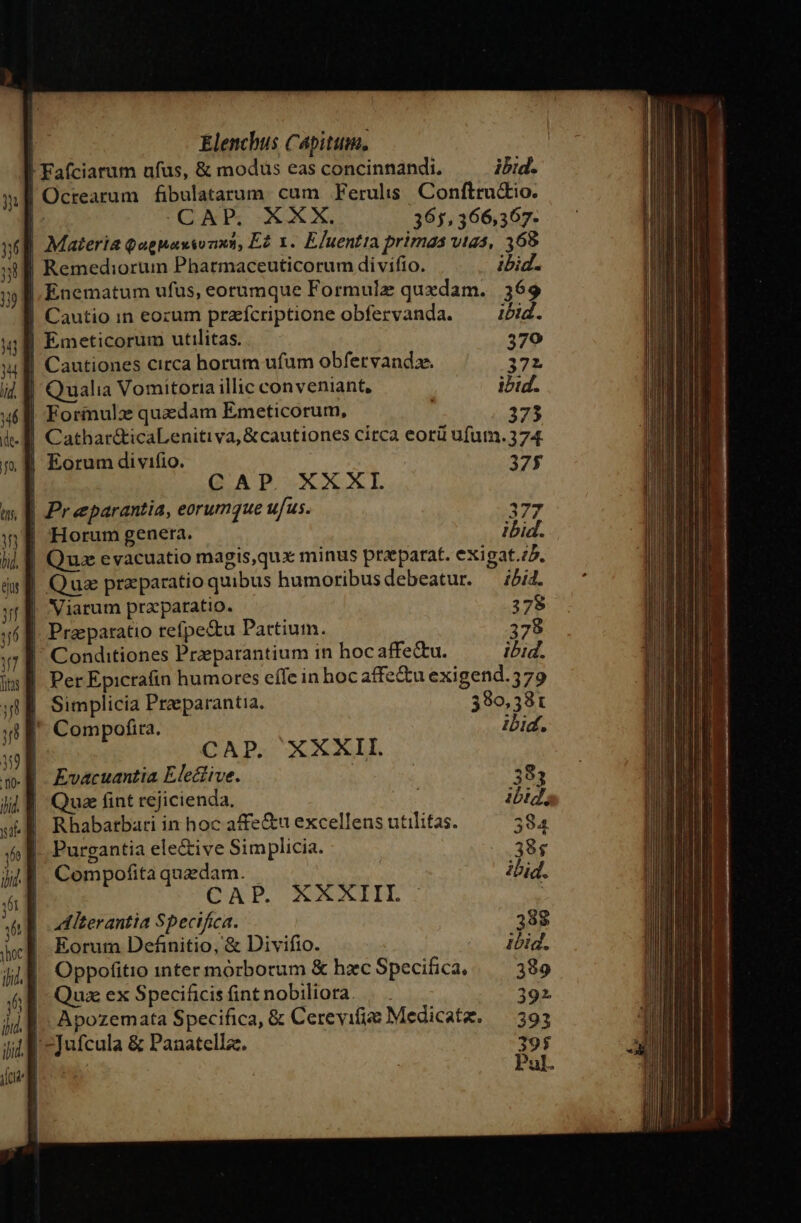 Elenchus Capitum.
Faſciarum uſus, & modus eas concinnandi. ibid.
Ocrearum fibulatarum cum Ferulis Conſtructio.
CAP. XXX. 365, 366, 367.
Materia φαρμακευτικὴ, Et 1. Eluentia primas vias, 368
Remediorum Pharmaceuticorum diviſio. ibid.
Enematum uſus, eorumque Formulæ quædam. 369
Cautio in eorum præſcriptione obſervanda. ibid.
Emeticorum utilitas. 370
Cautiones circa horum uſum obſervandæ. 372
Qualia Vomitoria illic conveniant, ibid.
Formulæ quædam Emeticorum, 373
Cathartica Lenitiva, & cautiones circa eorū uſum. 374
Eorum diviſio. 375
CAP. XXXI.
Præparantia, eorumque uſus. 377
Horum genera. ibid.
Quæ evacuatio magis, quæ minus præparat. exigat. ib.
Quæ præparatio quibus humoribus debeatur. ibid.
Viarum præparatio. 378
Præparatio reſpectu Partium. 378
Conditiones Præparantium in hoc affectu. ibid.
Per Epicraſin humores eſſe in hoc affectu exigend. 379
Simplicia Præparantia. 380, 381
Compoſita. ibid.
CAP. XXXII.
Evacuantia Elective. 383
Quæ ſint rejicienda. ibid.
Rhabarbari in hoc affectu excellens utilitas. 384
Purgantia elective Simplicia. 385
Compoſita quædam. ibid.
CAP. XXXIII.
Alterantia Specifica. 388
Eorum Definitio, & Diviſio. ibid.
Oppoſitio inter morborum & hæc Specifica, 389
Quæ ex Specificis ſint nobiliora. 392
Apozemata Specifica, & Cereviſiæ Medicatæ. 393
Juſcula & Panatellæ. 395
Pul.